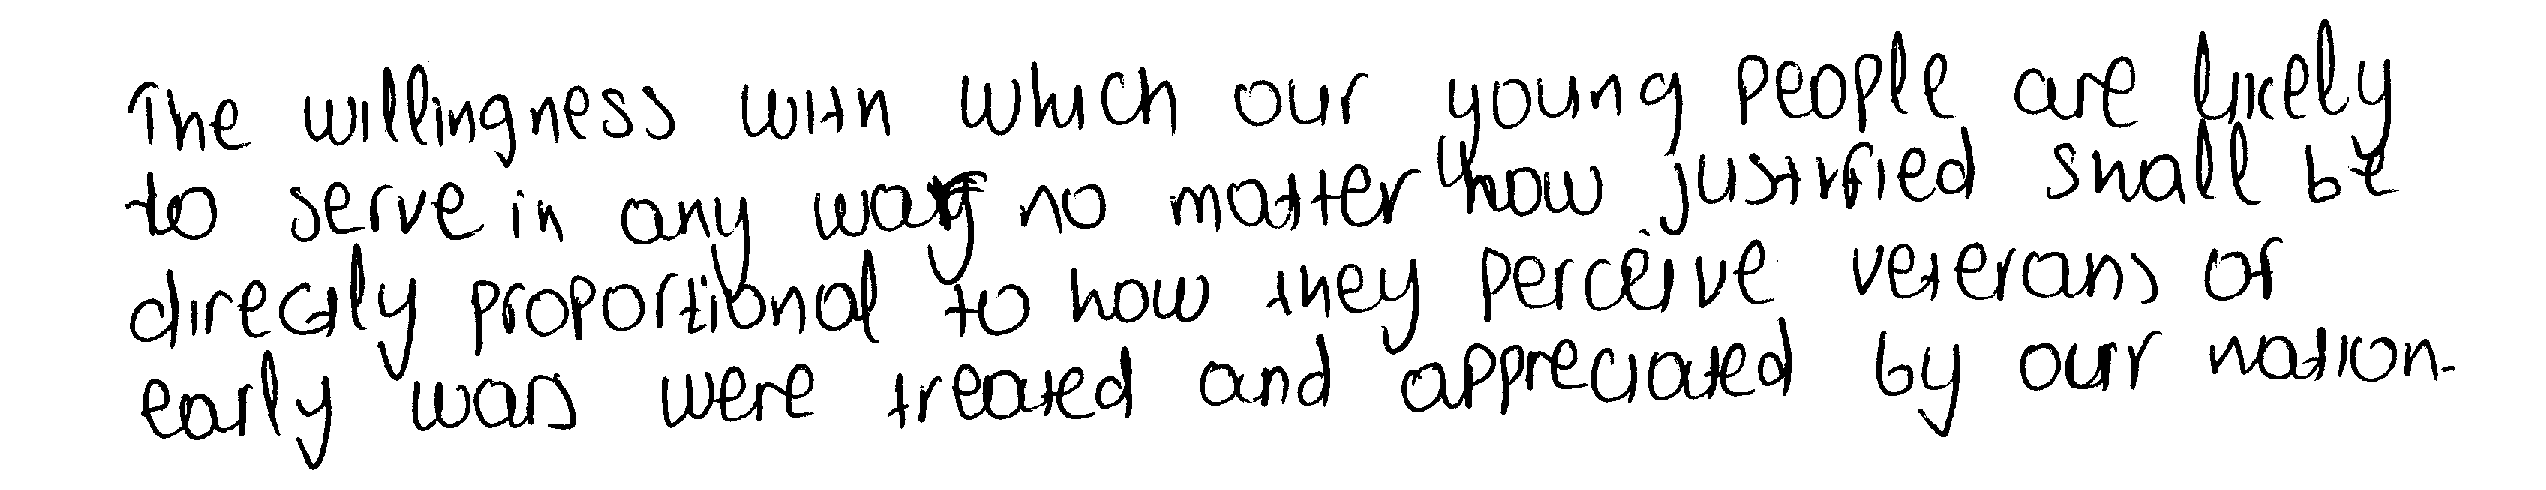 The willingness with which our young people are likely
to serve in any way no matter how justified shall be
directly proportional to how they perceive veterans of
early wars were treated and appreciated by our nation.